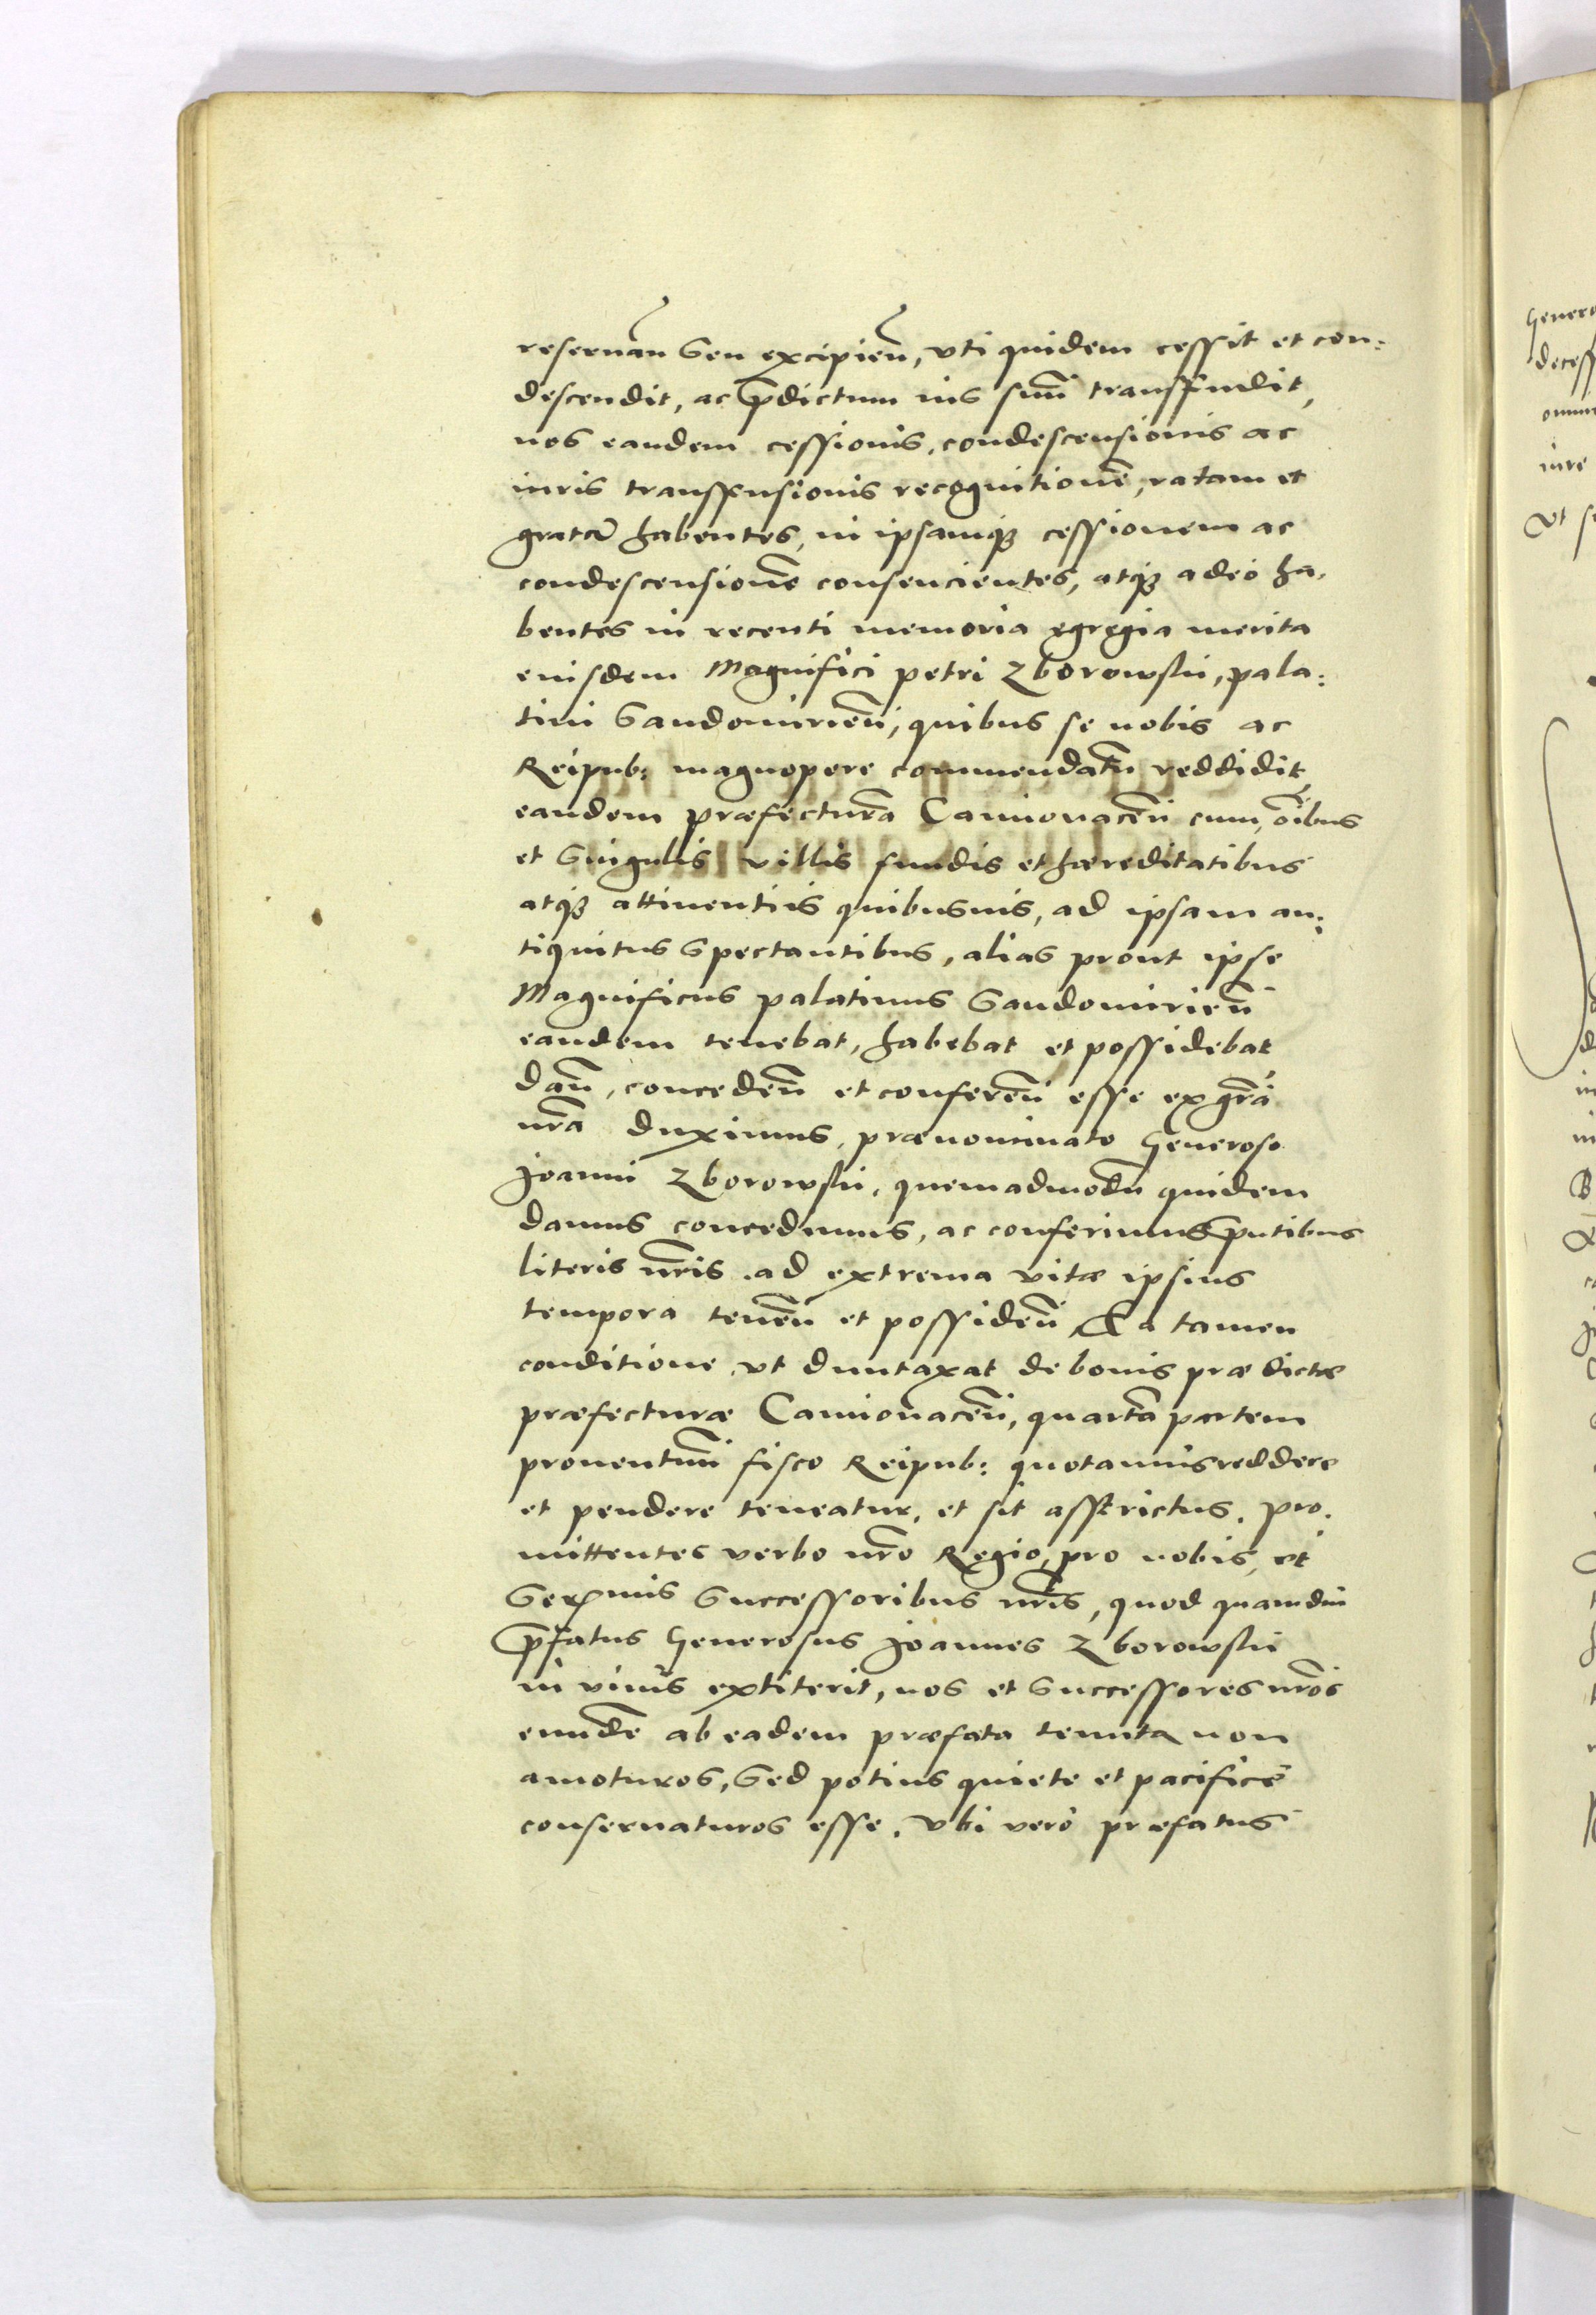 reseruan̄ seu excipien̄, vti quidem cessit et con:
descendit, ac p̄dictum ius suū transfudit,
nos eandem cessionis, condescensionis ac
iuris transfusionis recognitionē, ratam et
gratā habentes, in ipsamq3 cessionem ac
condescensionē consencientes, atq3 adeò ha,
bentes in recenti memoria egregia merita
eiusdem Magnifici petri Zborowski, pala:
tini Sandomirien̄, quibus se nobis ac
Reipub: magnopere commendatū reddidit,
eandem præfecturā Camionacen̄ cum oībus
et singulis villis fundis et hæreditatibus
atq3 attinentiis quibusuis, ad ipsam an:
tiquitus spectantibus, alias prout ipse
Magnificus palatinus Sandomirien̄
eandem tenebat, habebat et possidebat
dan̄, conceden̄ et conferen̄ esse ex gr̄a
nr̄a duximus, prænominato Generoso
Joanni Zborowski, quemadmodū quidem
damus concedimus, ac conferimus p̄ntibus
literis nr̄is ad extrema vitæ ipsius
tempora tenen̄ et possiden̄ Ea tamen
conditione, vt duntaxat de bonis prædictæ
præfecturæ Camionacen̄, quartā partem
prouentuū fisco Reipub: quotannis reddere
et pendere teneatur, et sit asstrictus. Pro,
mittentes verbo nr̄o Regio, pro nobis, et
Ser̄mis Successoribus nr̄is, quod quamdiu
p̄fatus Generosus Joannes Zborowski
in viuis extiterit, nos et Successores nr̄os
eundē ab eadem præfata tenuta non
amoturos, sed potius quiete et pacificè
conseruaturos esse. Vbi verò præfatus